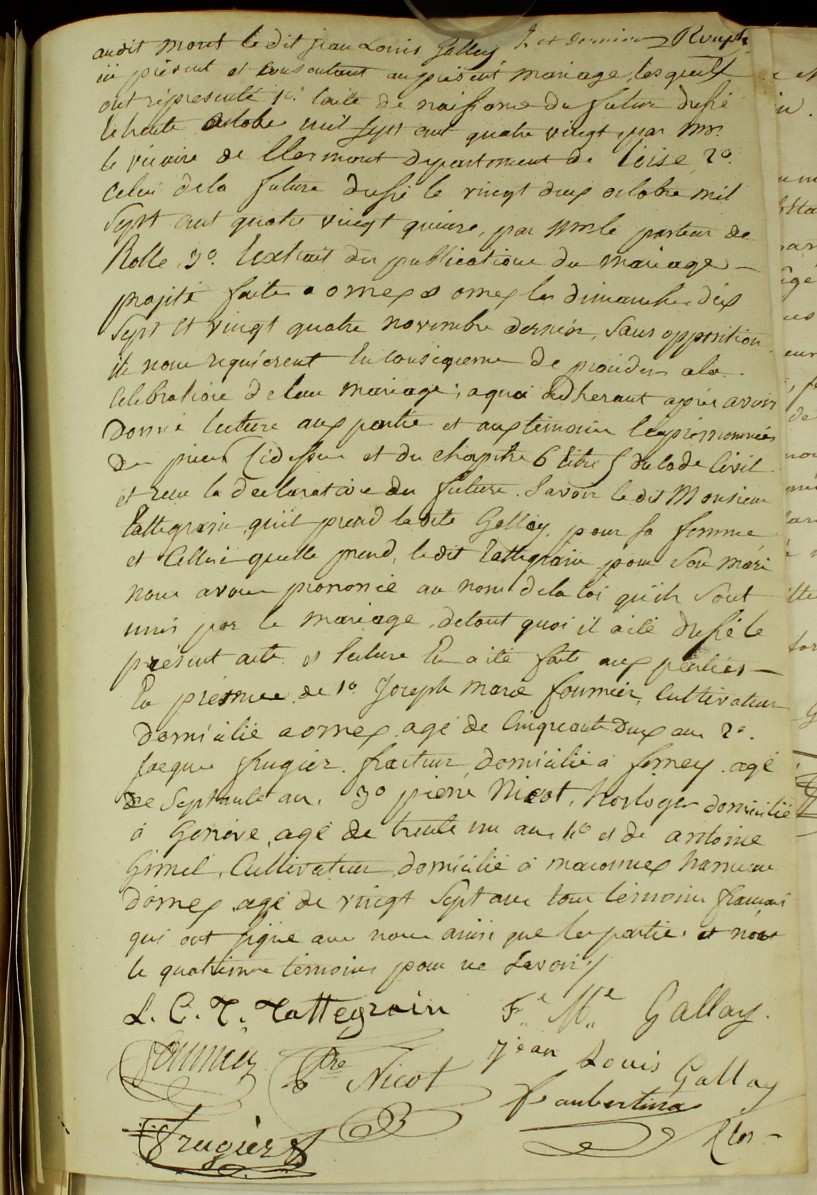 audit mont le dit jean Louis Gallay et dernier
ici présent et consentant au présent mariage, lesquels
ont représenté 1º l'acte de naissance du futur dressé
le trente octobre mil sept cent quatre vingt, par Mr.
le vicaire de Clermont département de l'oise, 2º.
Celui de la future dressé le vingt deux octobre mil
Sept cent quatre vingt quinze, par Mr le pasteur de
Rolle, 3º. l'extrait des publications du mariage
projeté faites a ornex les dimanches dix
Sept et vingt quatre novembre dernier, Sans opposition
ils nous requierent en consequence de proceder a la
Celebration de leur mariage; a quoi adherant après avoir
Donné lecture aux parties et aux témoins
des pieces Cidessus et du chapitre 6 titre 5 du Code Civil
et reçu la declaration des futurs. Savoir le dit Monsieur
Tattegrain qu'il prend la dite Gallay pour sa femme
et Celleci quelle prend le dit Tattegrain pour Son mari
nous avons prononcé au nom de la loi qu'ils Sont
unis par le mariage, de tout quoi il a été dressé le
présent acte et lecture en a été faite aux parties
En présence de 1º Joseph Marie fournier, Cultivateur
Domicilié a ornex agé de Cinquante Deux ans 2º.
Jacques frugier, facteur domicilié a ferney agé
de Septante ans. 3º pierre Nicot, horloger domicilié
à Genève, agé de trente un ans 4º et de antoine
Gimel, Cultivateur domicilié à maconnex hameau
d'ornex agé de vingt Sept ans tous témoins français
qui ont signé avec nous ainsi que les parties et non
le quatrieme témoins pour ne Savoir
L. C. T. Tattegrain F.e M.e Gallay.
fournier Pre Nicot jean Louis Gallay
frugier